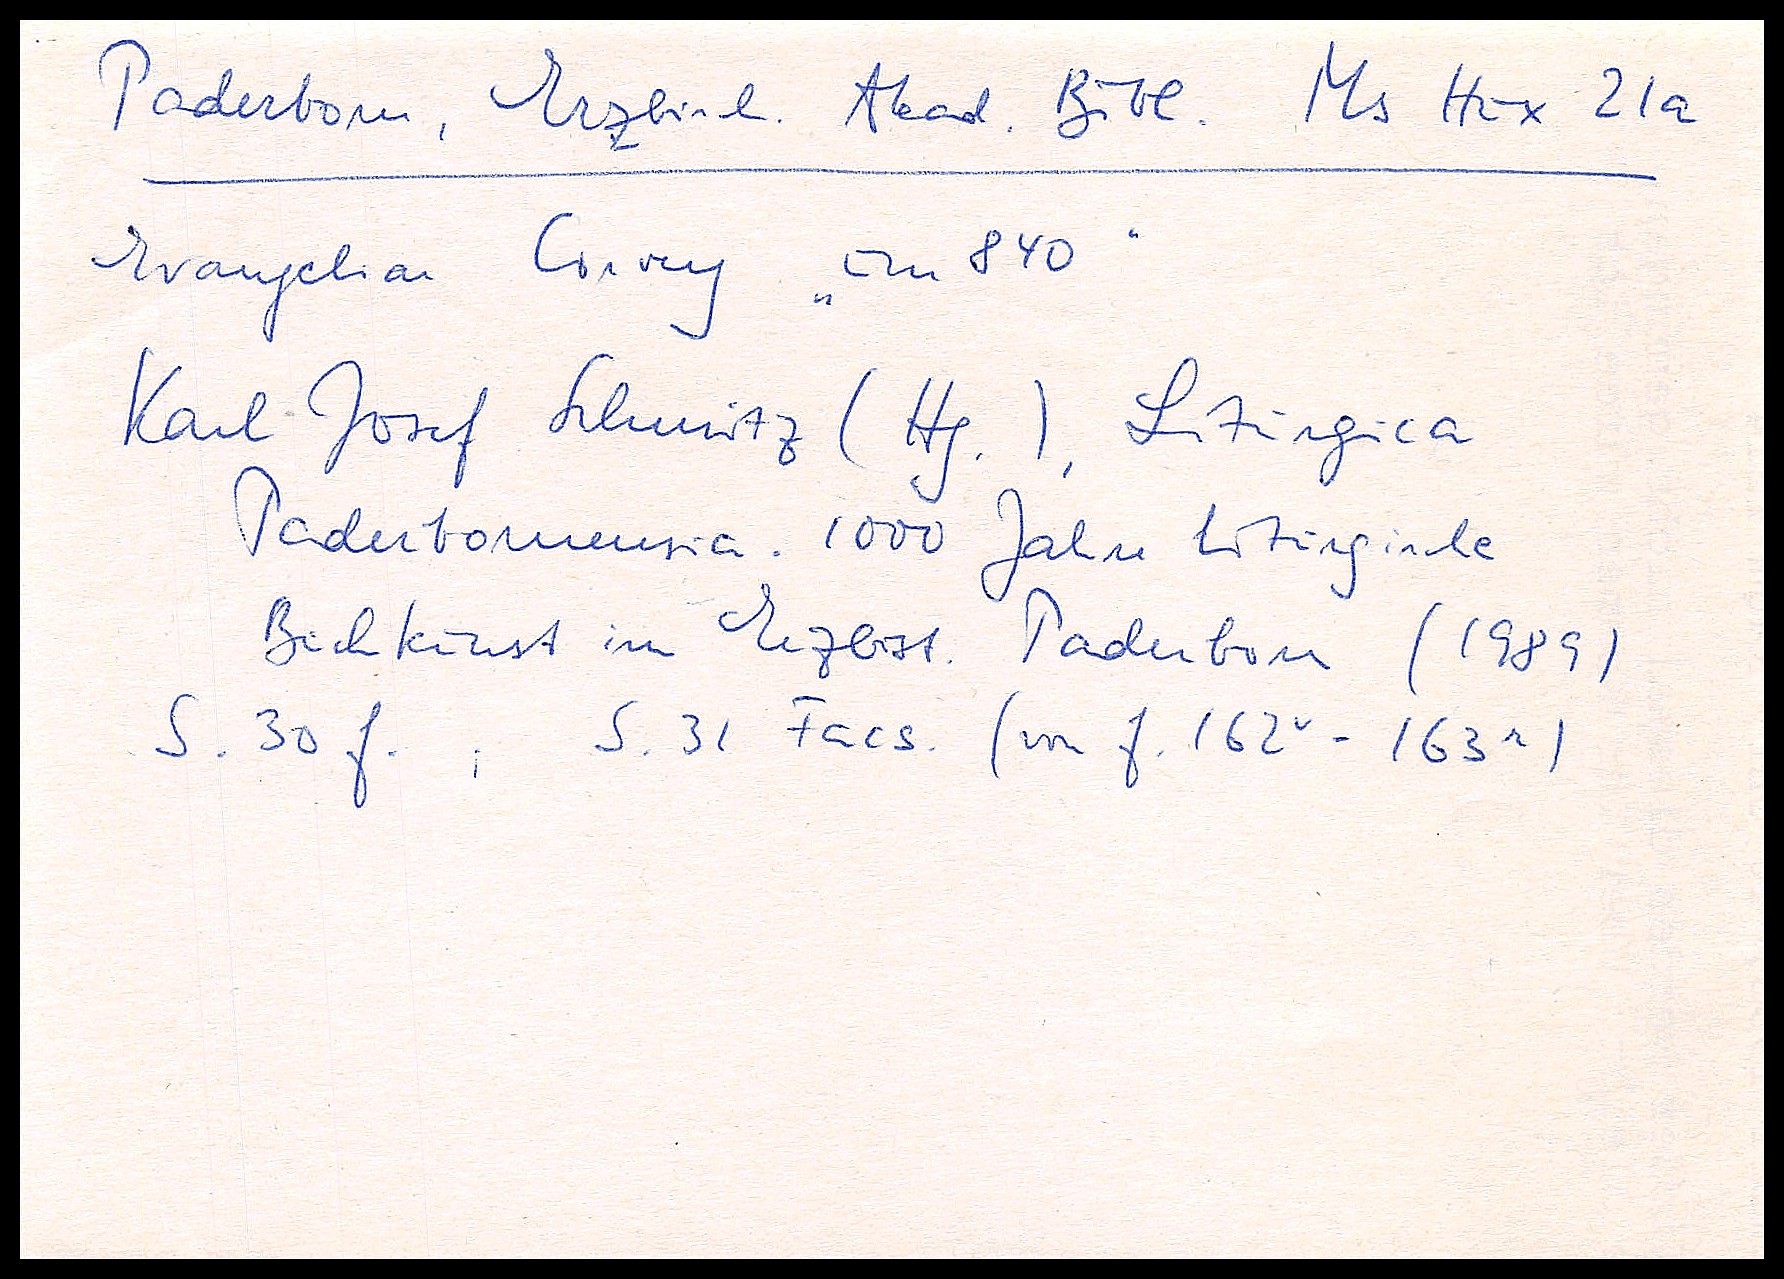 Paderborn, Erzbisch. Akad. Bibl. Ms Hux 21a
Evangeliar Corvey „um 840"
Karl Josef Schmitz (Hg.), Liturgica
Paderbornensia. 1000 Jahre liturgische
Buchkunst im Erzbist. Paderborn (1989)
S. 30 f. ; S. 31 Facs. (von f. 162v - 163r)